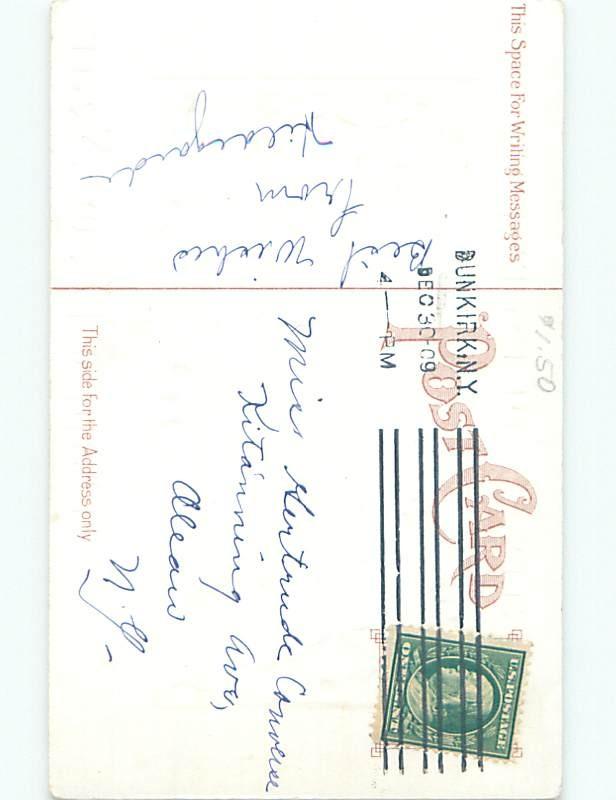 This Space For Writing Messages
Best Wishes
from
Hildegarde
POST CARD
DUNKIRK, N.Y.
DEC 30-09
4—PM
$1.50
U.S. POSTAGE
ONE CENT
This side for the Address only
Miss Gertrude Converse
Kitanning Ave,
Olean
N.Y.-